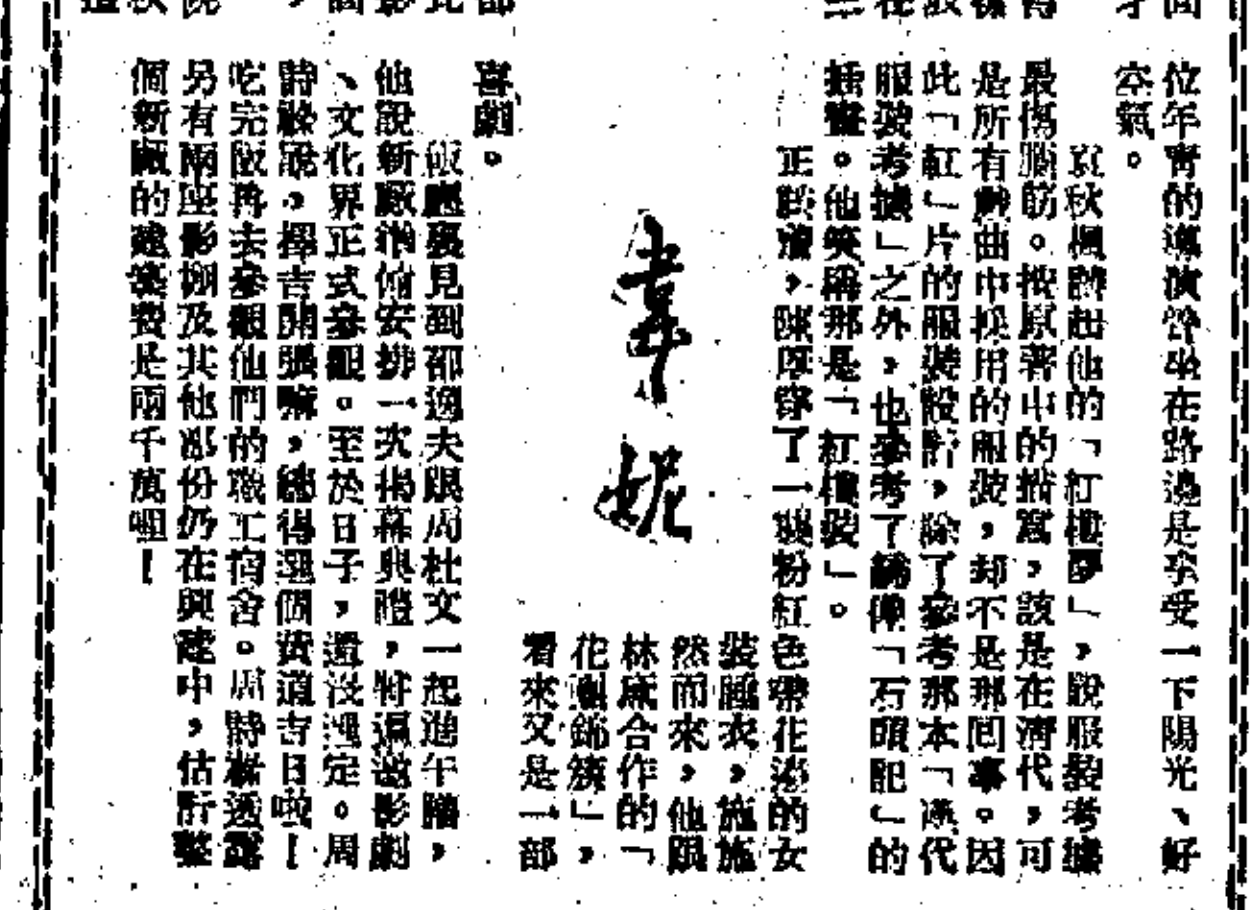 位年青的導演併坐在路邊是享受一下陽光、好
空氣。
袁秋楓談起他的「紅樓夢」，說服裝考據
最傷腦筋。按原著中的描寫，該是在清代，可
是所有戲曲中採用的服裝，却不是那回事。因
此「紅」片的服裝設計，除了參考那本「漢代
服裝考據」之外，也參考了繡像「石頭記」的
插畫。他笑稱那是「紅樓裝」。
正談着，陳厚穿了一襲粉紅色帶花邊的女
裝睡衣，施施
然而來，他跟
林黛合作的「
花團錦簇」，
看來又是一部
喜劇。
韋妮
飯廳裏見到邵逸夫跟周杜文一起進午膳，
他說新廠準備安排一次揭幕典禮，將邀影劇
、文化界正式參觀。至於日子，還沒選定。周
詩毅說，擇吉開張嘛，總得選個黃道吉日啦！
吃完飯再去參觀他們的職工宿舍。周詩毅透露
另有兩座影棚及其他部份仍在興建中，估計整
個新廠的建築費是兩千萬呢！